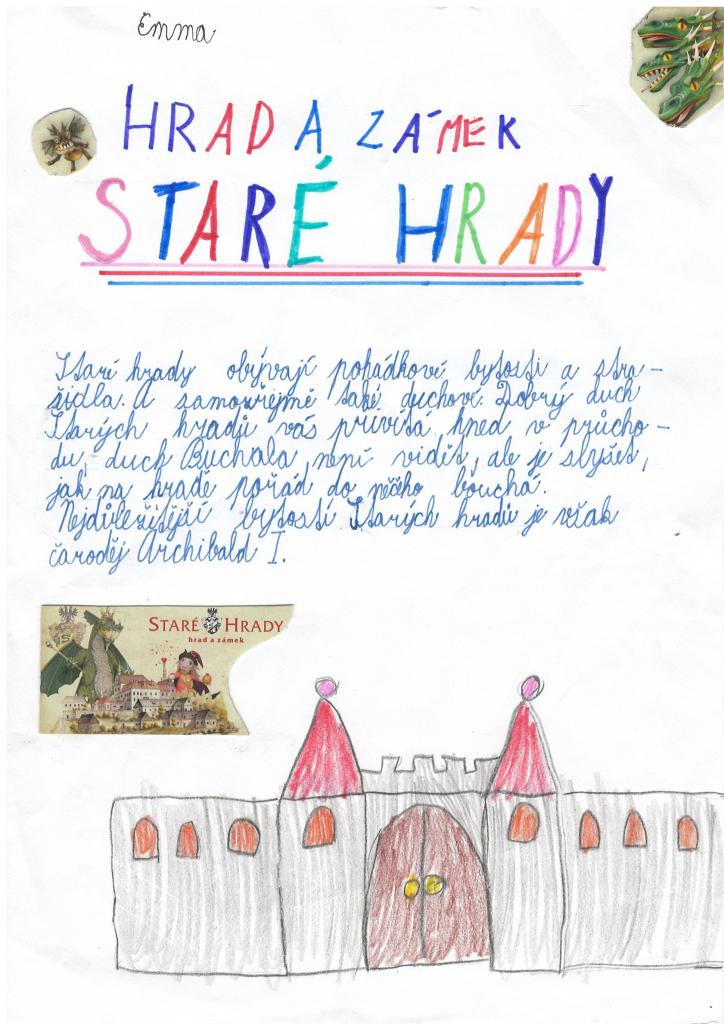 Emma
HRAD A ZÁMEK
STARÉ HRADY
Staré hrady obývají pohádkové bytosti a stra-
šidla. A samozřejmě také duchové. Dobrý duch
Starých hradů vás přivítá hned v průcho-
du, duch Buchala není vidět, ale je slyšet,
jak na hradě pořád do něčeho bouchá.
Nejdůležitější bytostí Starých hradů je však
čaroděj Archibald I.
STARÉ HRADY
hrad a zámek